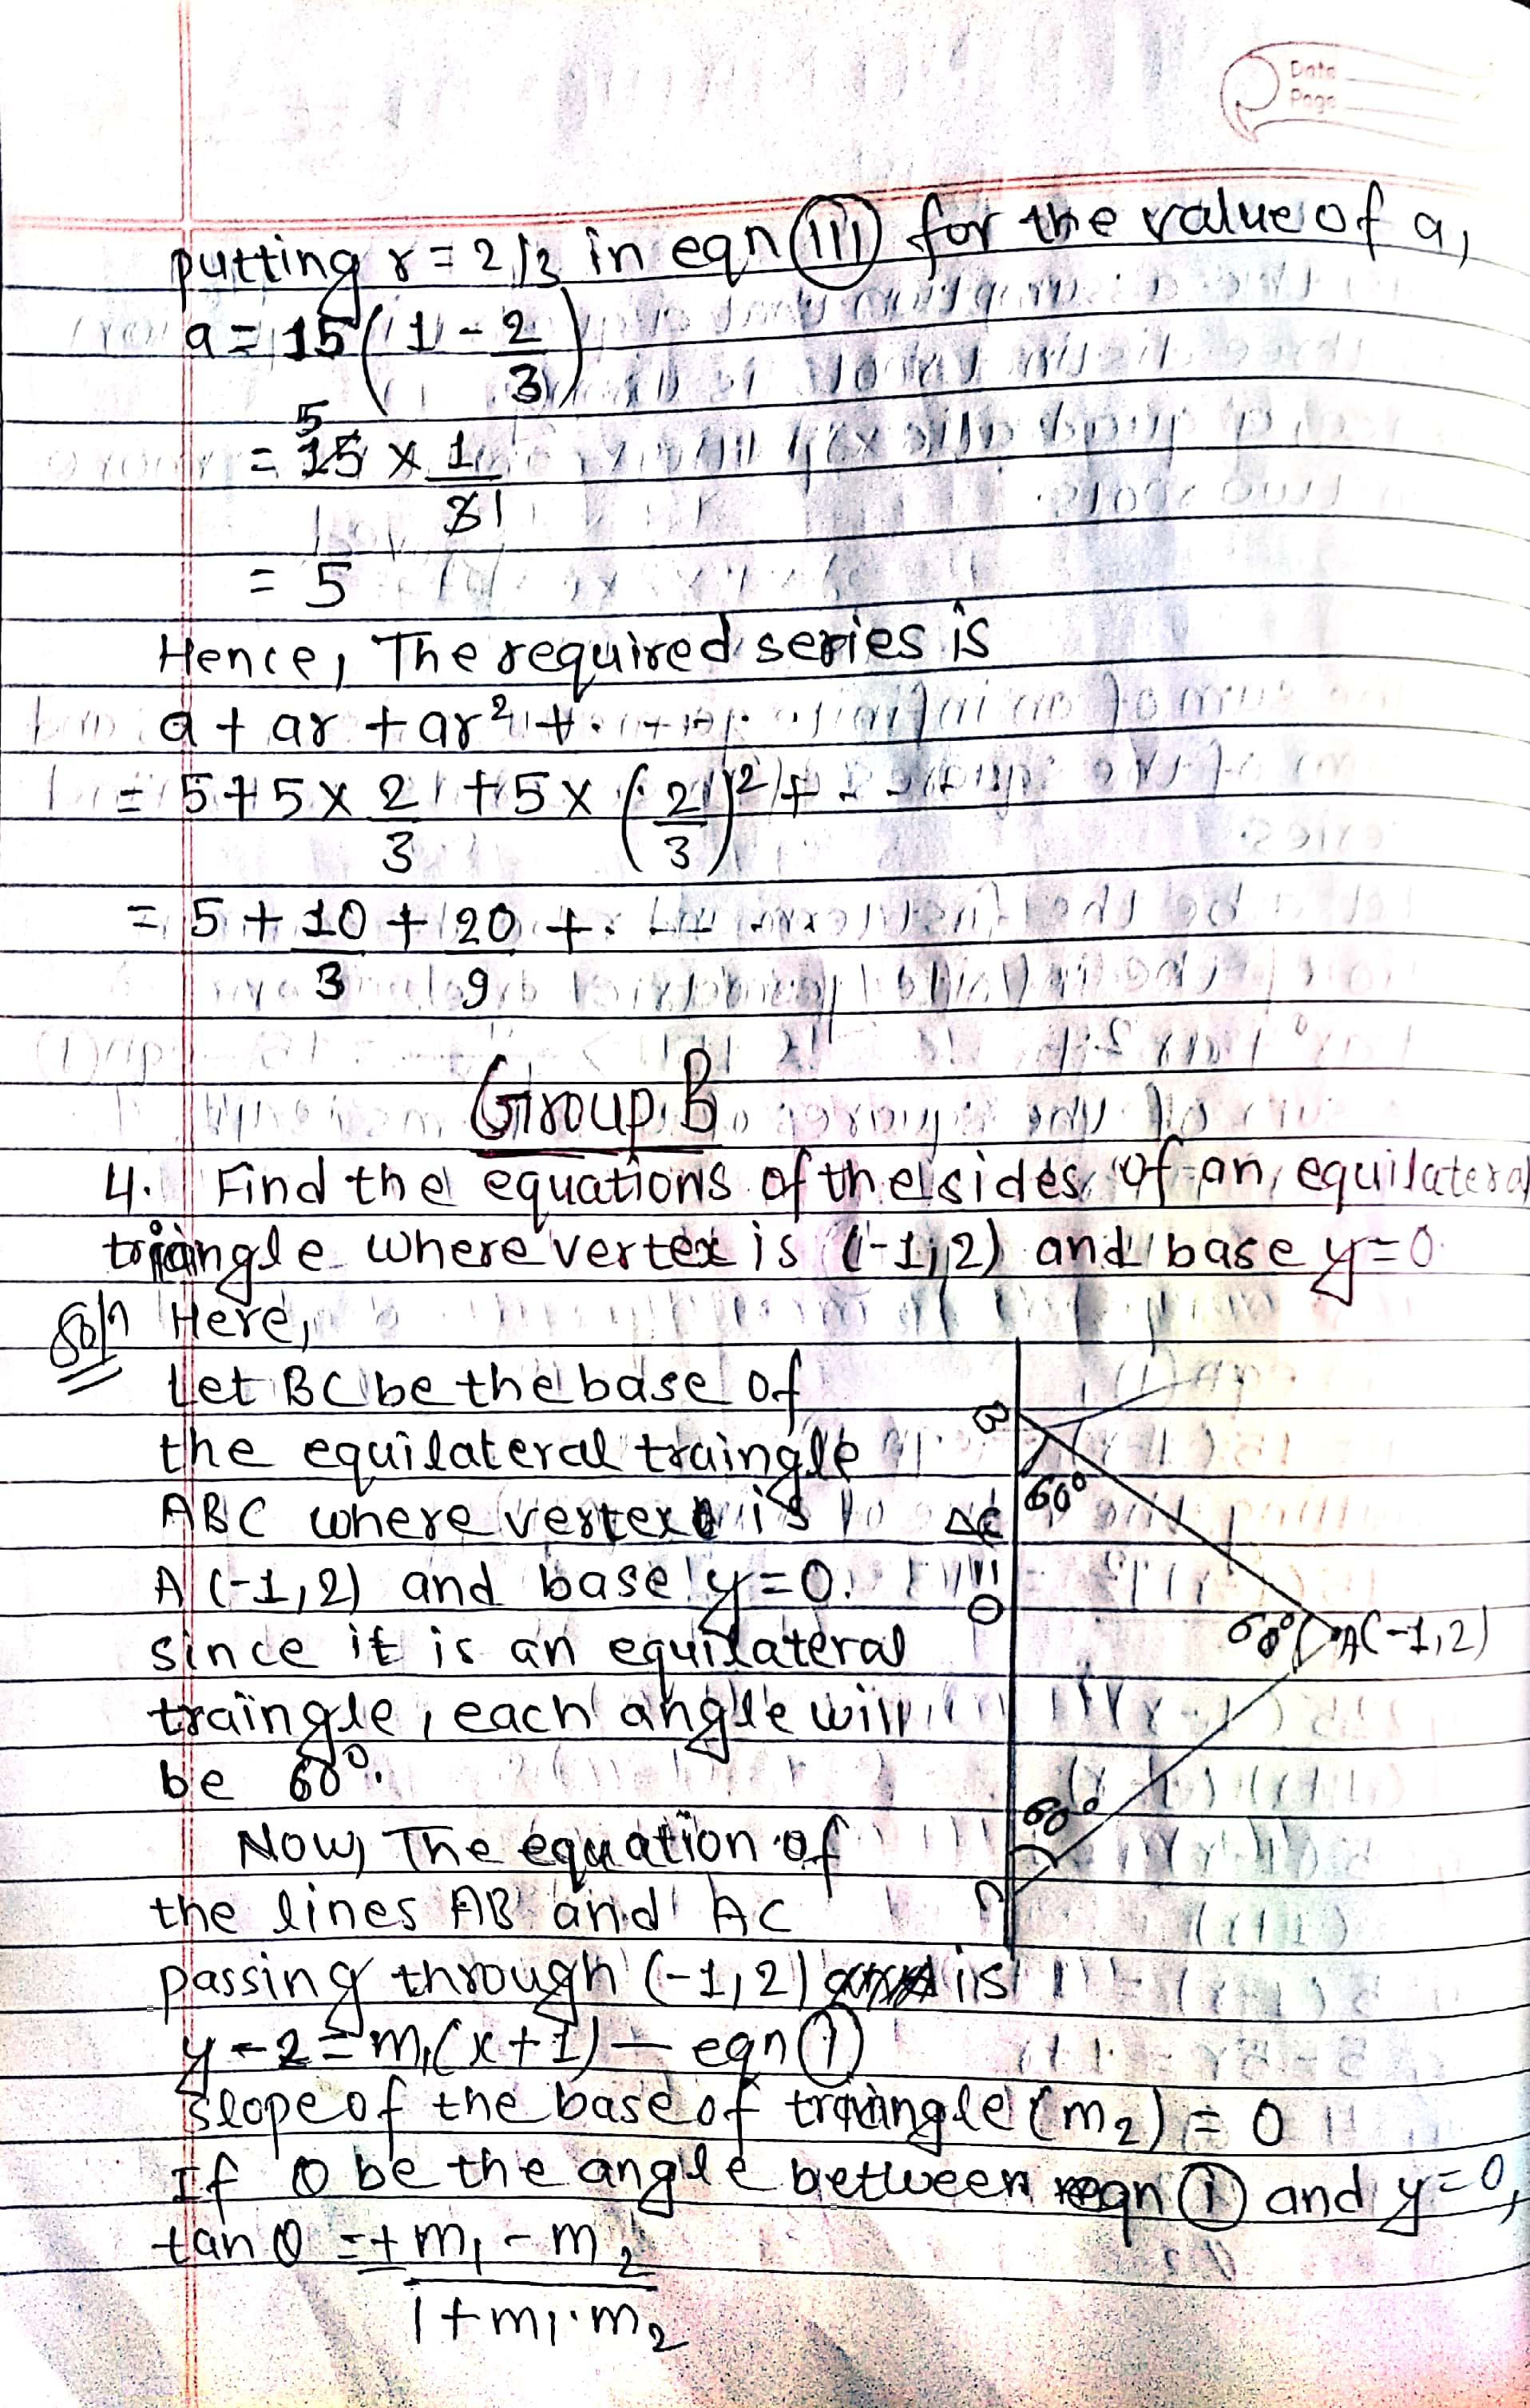 Date
Page
putting r = 2/3 in eqn (III) for the value of a,
a = 15 ( 1 - 2/3 )
= 15 5 × 1/3 1
= 5
Hence, The required series is
a + ar + ar² + ...
= 5 + 5 × 2/3 + 5 × (2/3)² + ...
= 5 + 10/3 + 20/9 + ...
Group B
4. Find the equations of the sides of an equilateral
triangle where vertex is (-1,2) and base y=0
Soln Here,
Let BC be the base of
the equilateral traingle
ABC where vertex is
A (-1,2) and base y=0.
since it is an equilateral
traingle, each angle will
be 60°.
Now, The equation of
the lines AB and AC
passing through (-1,2) is
y - 2 = m₁(x+1) — eqn (i)
slope of the base of traingle (m₂) = 0
If θ be the angle between eqn (i) and y=0,
tan θ = ± m₁ - m₂ / 1 + m₁.m₂
B
60°
y=0
60°
A(-1,2)
60°
C